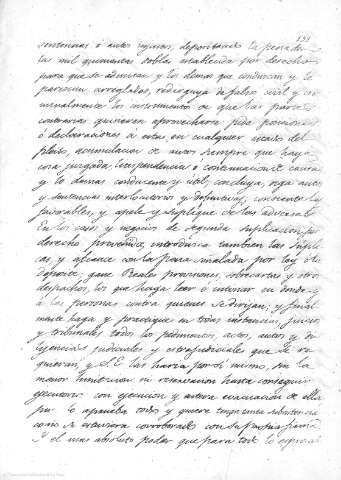 133
sentencias ó autos injustos, depositando la pena de
las mil quinientas doblas establecida por derecho
para que se admitan y los demas que conduzcan y le
parecieren arreglados, redarguya de falso civil y cri
minalmente los instrumentos de que las partes
contrarias quisieren aprovecharse pida posiciones
ó declaraciones á estas, en cualquier estado del
pleito, acumulacion de autos siempre que haya
cosa juzgada, litispendencia ó continencia de causa
y lo demas conducente y util, concluya, oiga autos
y sentencias interlocutorios y definitivas, consienta lo
favorables, y apele y suplique de los adversos
En los casos y negocios de segunda suplicacion por
derecho prevenidos, introduzca tambien las supli
cas, y afiance con la pena señalada por ley ó la
deposite, gane Reales provisiones, sobrecartas y otros
despachos, los que haga leer é intimar en donde y
á las personas contra quienes se dirijan, y final
mente haga y practique en todas instancias, juicios
y tribunales todos los pedimentos, actos, autos y di
ligencias judiciales y extrajudiciales que se re
quieran, y S.E. las haria por si mismo, sin la
menor limitacion ni reservacion hasta conseguir
ejecutorio con ejecucion y entera evacuacion de ella
pues lo aprueba todo y quiere tenga tanta subsistencia
como si estuviera corroborado con su propia firma
Y el mas absoluto poder que para todo lo expresado